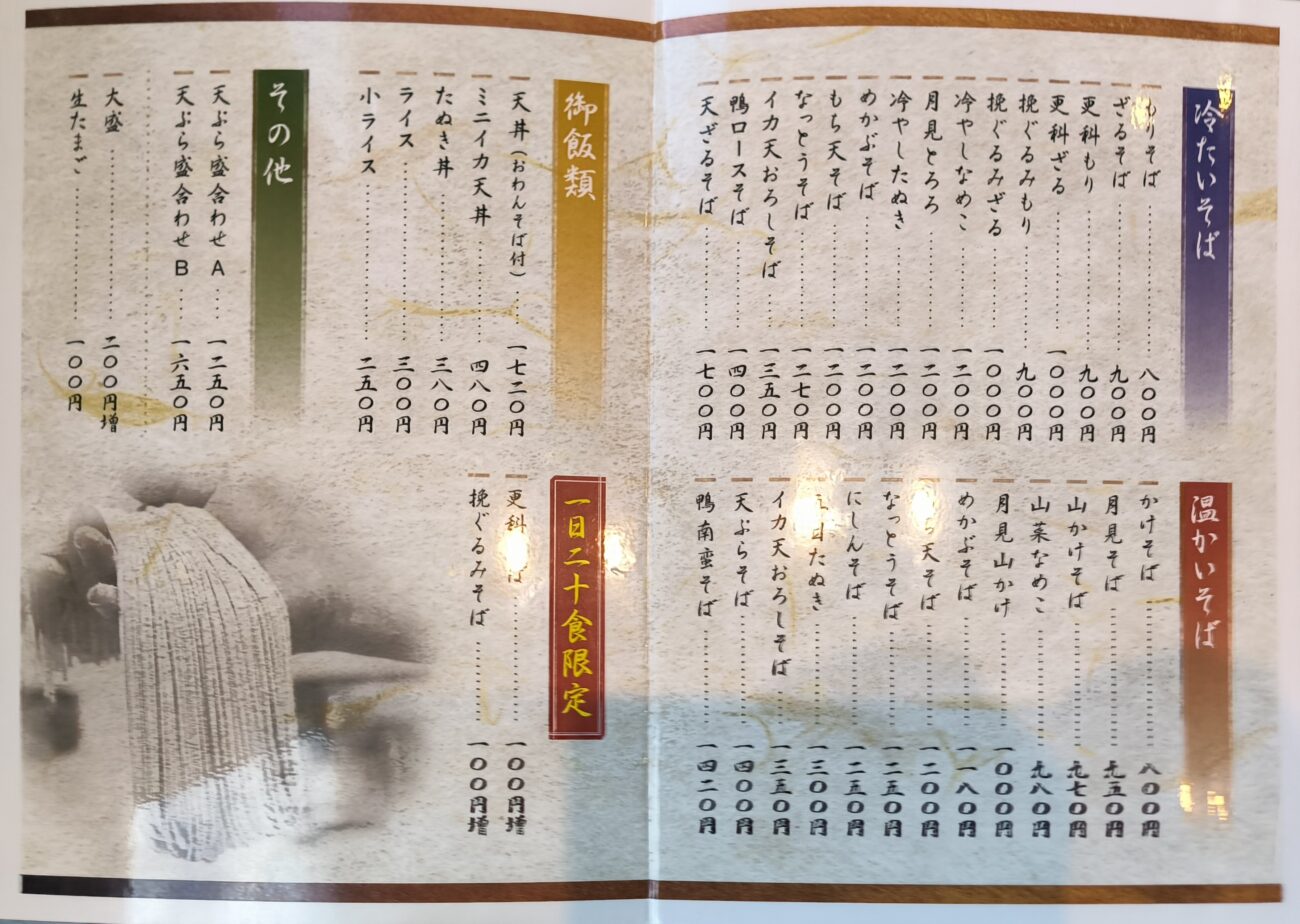 冷たいそば
もりそば 八〇〇円
ざるそば 九〇〇円
更科もり 九〇〇円
更科ざる 一〇〇〇円
挽ぐるみもり 九〇〇円
挽ぐるみざる 一〇〇〇円
冷やしなめこ 一二〇〇円
月見とろろ 一二〇〇円
冷やしたぬき 一二〇〇円
めかぶそば 一二〇〇円
もち天そば 一二〇〇円
なっとうそば 一二七〇円
イカ天おろしそば 一三五〇円
鴨ロースそば 一四〇〇円
天ざるそば 一七〇〇円
温かいそば
かけそば 八〇〇円
月見そば 九五〇円
山かけそば 九七〇円
山菜なめこ 九八〇円
月見山かけ 一〇〇〇円
めかぶそば 一一八〇円
ち天そば 一二〇〇円
なっとうそば 一二五〇円
にしんそば 一二五〇円
目たぬき 一三〇〇円
イカ天おろしそば 一三五〇円
天ぷらそば 一四〇〇円
鴨南蛮そば 一四二〇円
御飯類
天丼(おわんそば付) 一七二〇円
ミニイカ天丼 四八〇円
たぬき丼 三八〇円
ライス 三〇〇円
小ライス 二五〇円
その他
天ぷら盛合わせA 一二五〇円
天ぷら盛合わせB 一六五〇円
大盛 二〇〇円増
生たまご 一〇〇円
一日二十食限定
更科そば 一〇〇円増
挽ぐるみそば 一〇〇円増